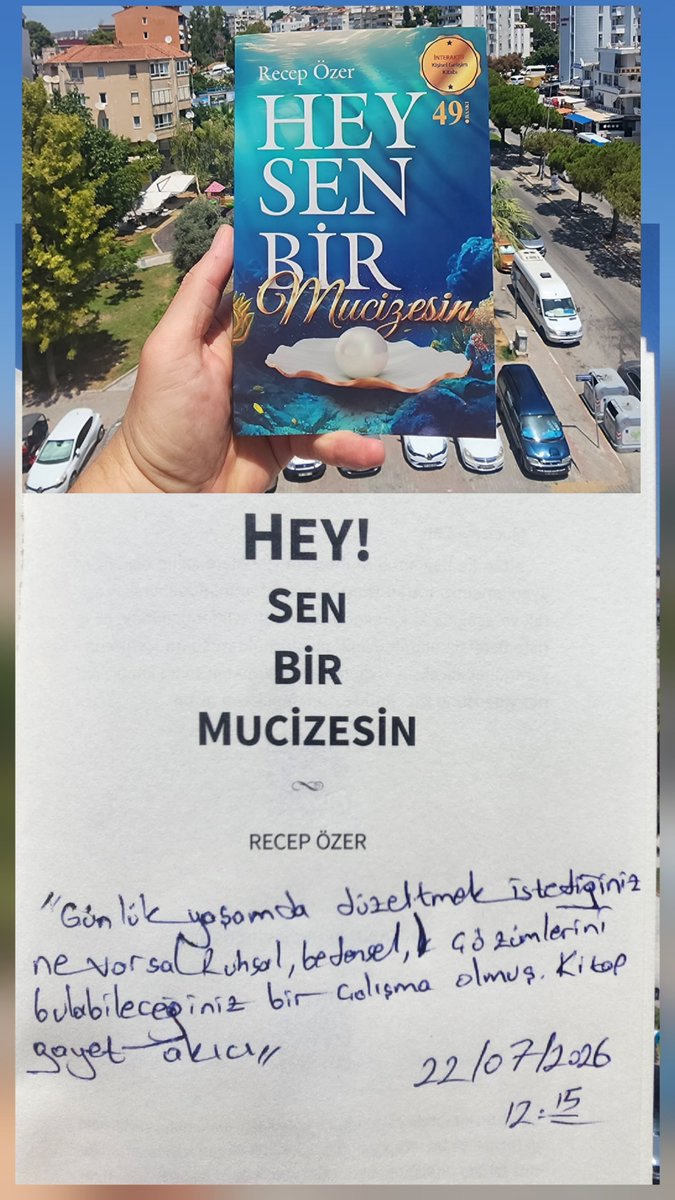 Recep Özer
İNTERAKTİF
Kişisel Gelişim
Kitabı
HEY
49. BASKI
SEN
BİR
Mucizesin
HEY!
SEN
BİR
MUCİZESİN
RECEP ÖZER
"Günlük yaşamda düzeltmek istediğiniz
ne varsa Ruhsal, bedensel, çözümlerini
bulabileceğiniz bir çalışma olmuş. Kitap
gayet akıcı"
22/07/2026
12:15